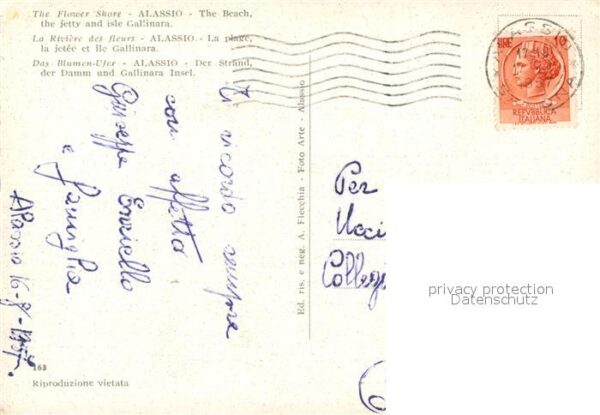 The Flower Shore - ALASSIO - The Beach,
the jetty and isle Gallinara.
La Rivière des fleurs - ALASSIO - La plage,
la jetée et île Gallinara.
Das Blumen-Ufer - ALASSIO - Der Strand,
der Damm und Gallinara Insel.
Ti ricordo sempre
con affetto
Giuseppe
e famiglia
Alassio 16-8-
Ed. ris. e neg. A. Flecchia - Foto Arte - Alassio
163
Riproduzione vietata
LIRE 10
REPVBBLICA
ITALIANA
ALASSIO
Per
Ucci
Colleg
privacy protection
Datenschutz